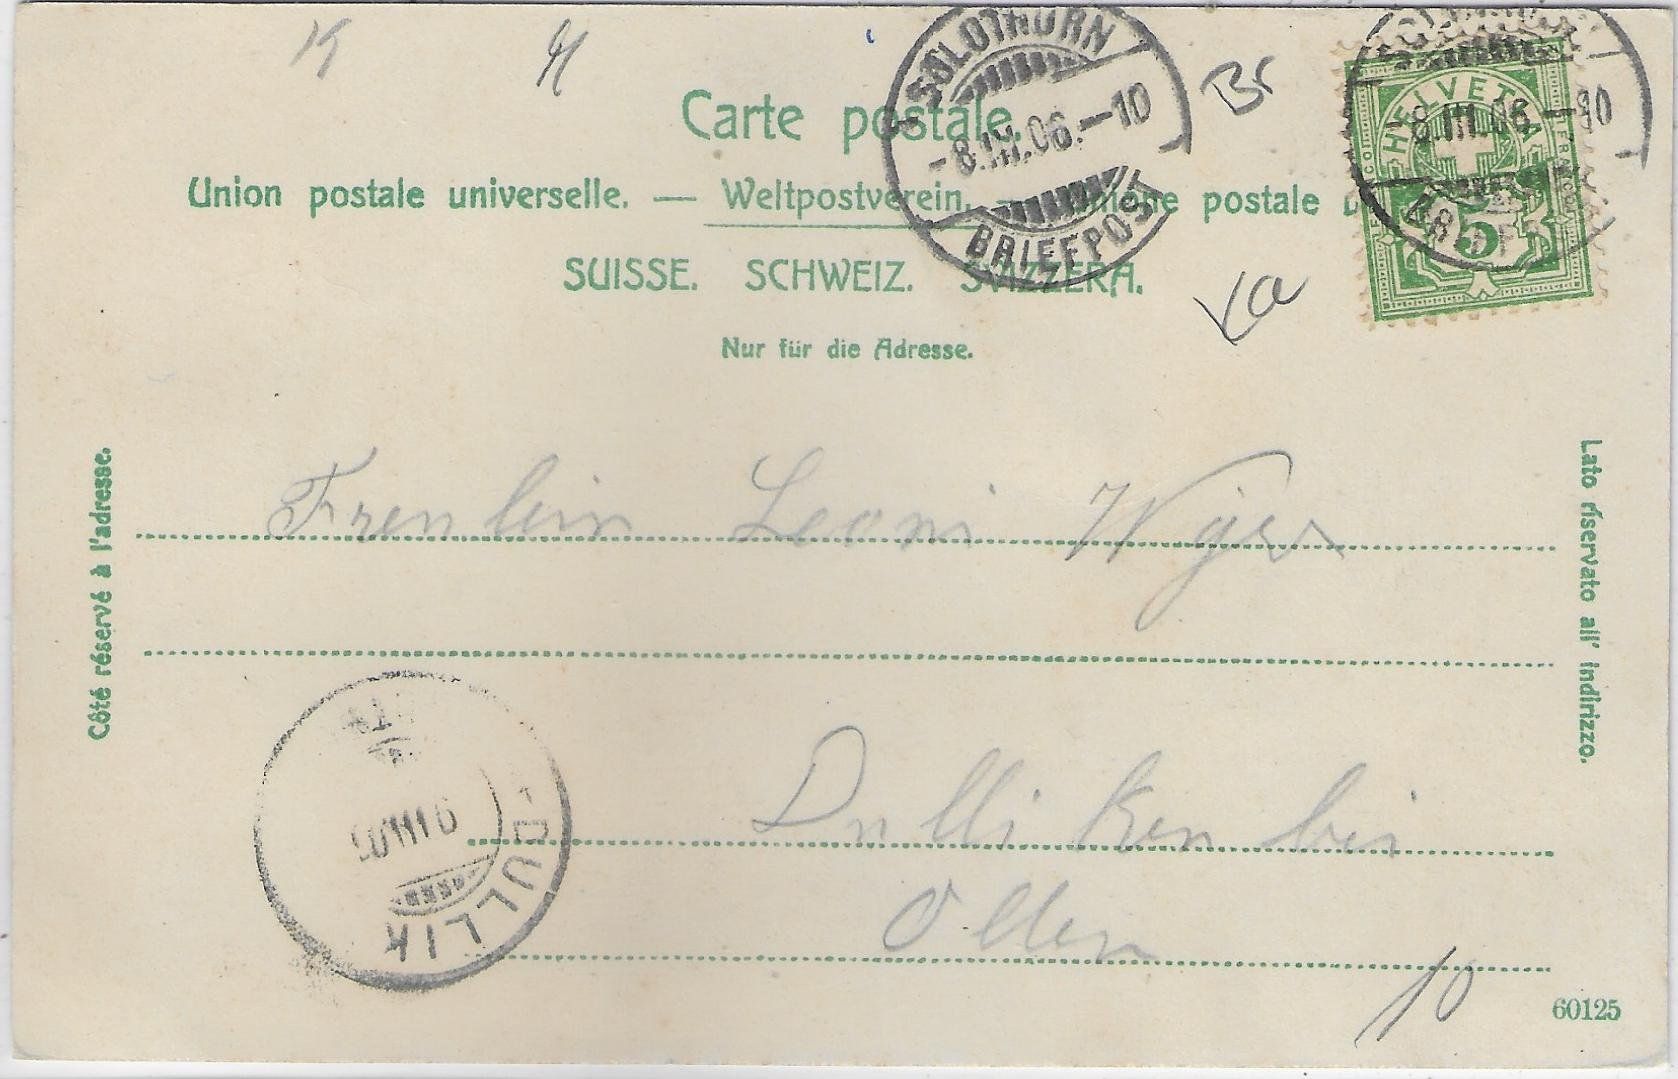 K
Br
Carte postale.
Union postale universelle. — Weltpostverein. — postale
SUISSE. SCHWEIZ. SVIZZERA.
Nur für die Adresse.
SOLOTHURN
-8.III.06.-10
BRIEFPOST
HELVETIA
FRANCO
5
8.III.06.-10
Va
Côté réservé à l'adresse.
Lato riservato all' indirizzo.
Freulein Leoni
Dulliken bei
Olten
DULLIK
10
60125